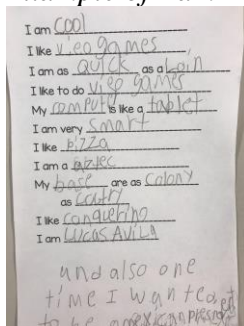 I am cool
I like video games
I am as quick as a coin
I like to do video games
My computer is like a tablet
I am very smart
I like pizza
I am a aztec
My base are as colony
as
I like conquering
I am Lucas Avila
and also one
time I wanted
to be